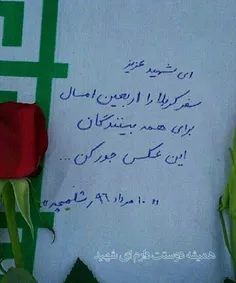 ای شهید عزیز
سفر کربلا را اربعین امسال
برای همه بینندگان
این عکس جور کن ...
۱۰ مرداد ۹۶
همیشه دوستت دارم ای شهید